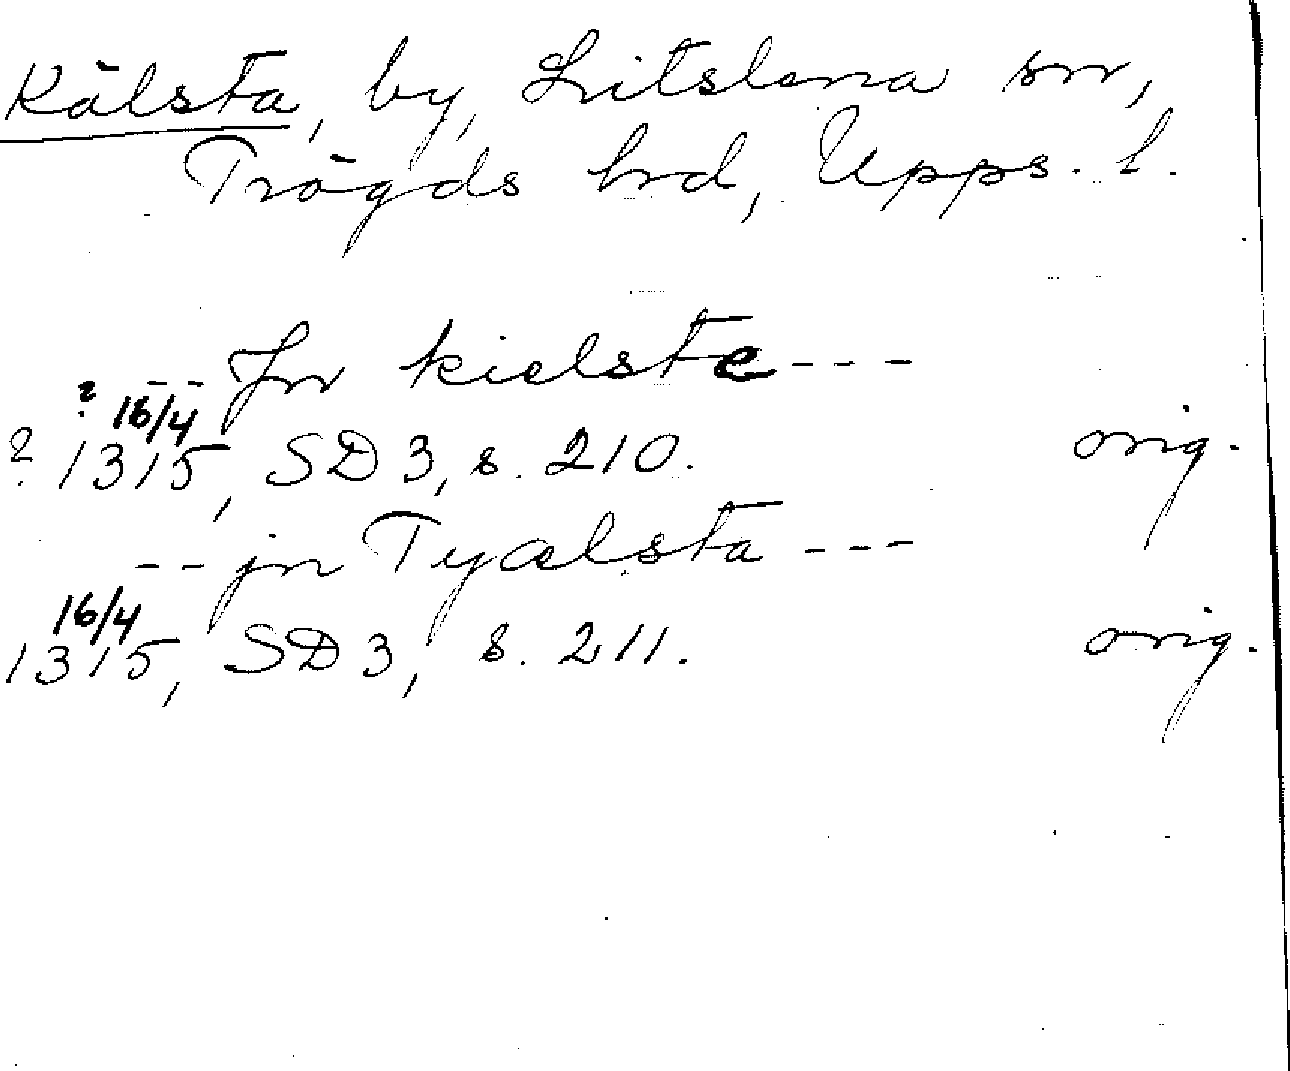 Kälsta, by, Litslena sn,
Trögds hrd, Upps. l.
-- Jn kielste ---
? 16/4
? 1315, SD 3, s. 210. orig.
-- jn Tyælsta ---
16/4
1315, SD 3, s. 211. orig.